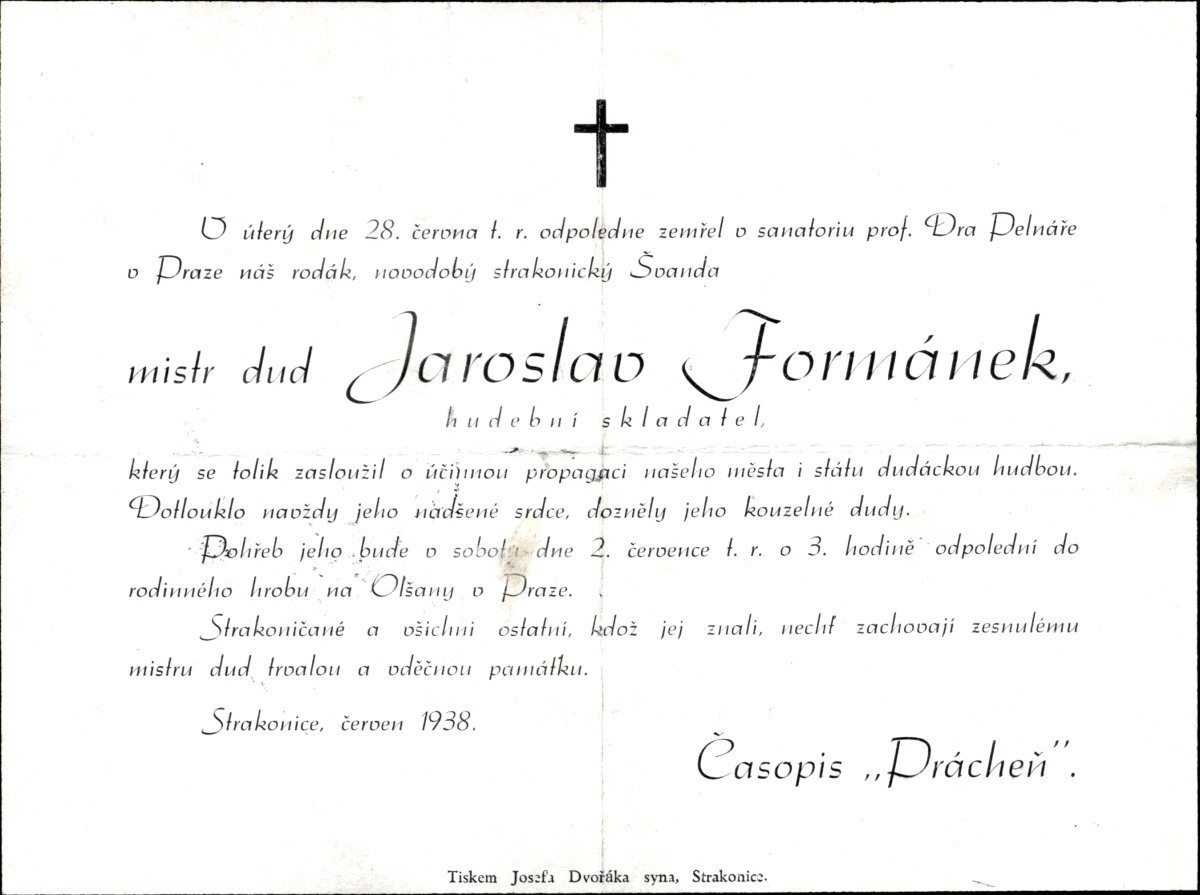 V úterý dne 28. června t. r. odpoledne zemřel v sanatoriu prof. Dra Pelnáře
v Praze náš rodák, novodobý strakonický Švanda
mistr dud Jaroslav Formánek,
hudební skladatel,
který se tolik zasloužil o účinnou propagaci našeho města i státu dudáckou hudbou.
Dotlouklo navždy jeho nadšené srdce, dozněly jeho kouzelné dudy.
Pohřeb jeho bude v sobotu dne 2. července t. r. o 3. hodině odpolední do
rodinného hrobu na Olšany v Praze.
Strakoničané a všichni ostatní, kdož jej znali, nechť zachovají zesnulému
mistru dud trvalou a vděčnou památku.
Strakonice, červen 1938.
Časopis „Prácheň".
Tiskem Josefa Dvořáka syna, Strakonice.